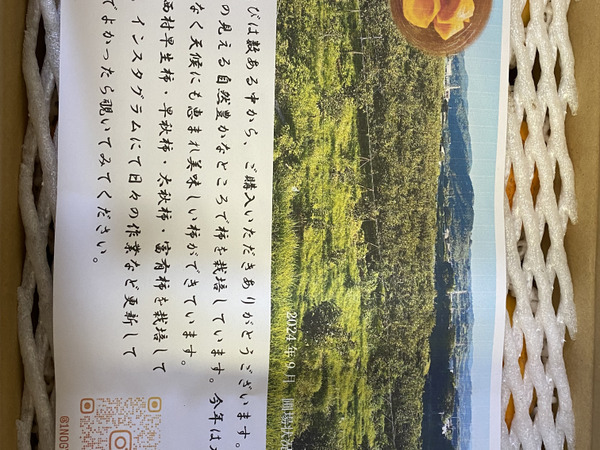 びは数ある中から、ご購入いただきありがとうございます。
の見える自然豊かなところで柿を栽培しています。今年は
なく天候にも恵まれ美味しい柿ができています。
西村早生柿・早秋柿・太秋柿・富有柿を栽培して
、インスタグラムにて日々の作業など更新して
でよかったら覗いてみてください。
2024年9月
@1NOG